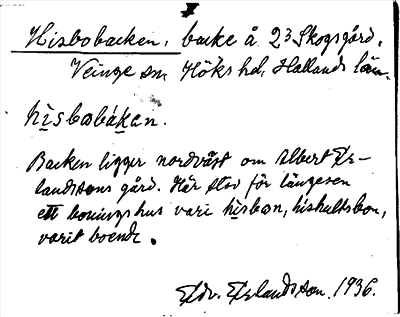 Hisbobacken, backe å 23 Skogsgård,
Veinge sn Höks hd, Hallands län.
hìsbobákan.
Backen ligger nordväst om Albert Er-
landssons gård. Här stod för längesen
ett boningshus vari hisbon, hishultsbon,
varit boende.
Edv. Erlandsson. 1936.